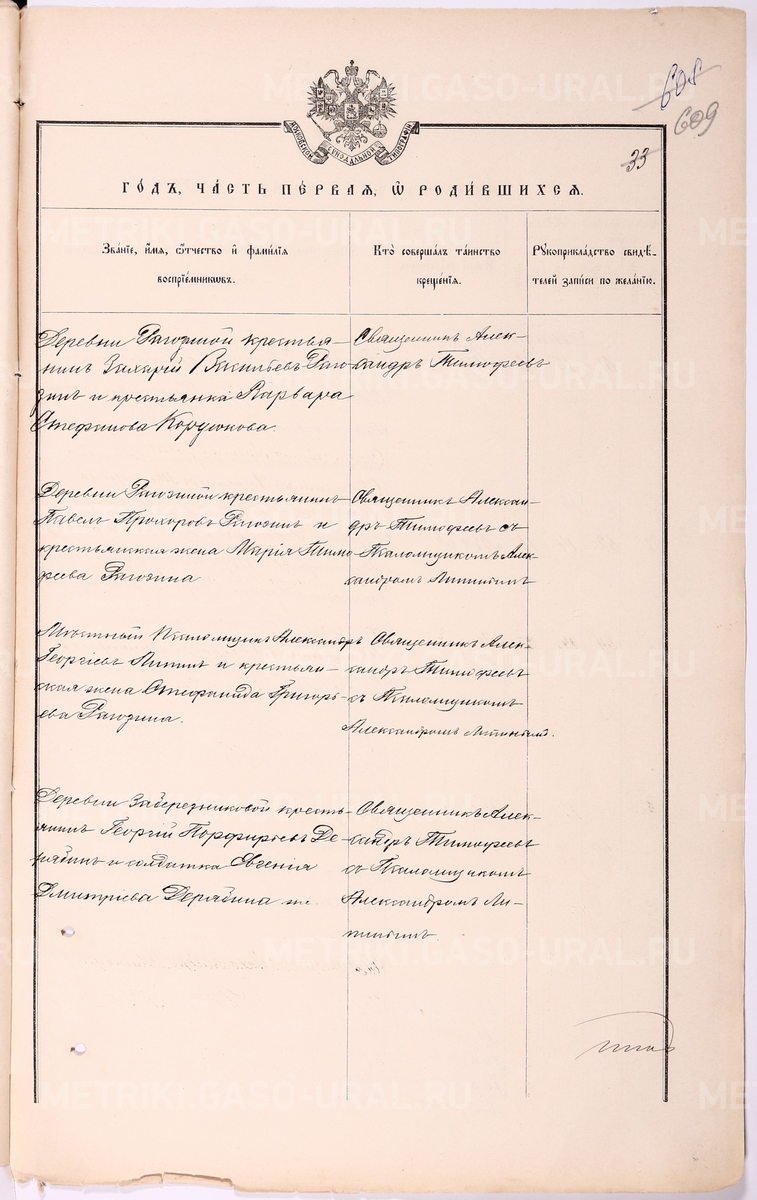 608
609
33
МОСКОВСКОЙ СѴНОДАЛЬНОЙ ТИПОГРАФІИ
ГО́ДЪ, ЧА́СТЬ ПЕ́РВАЯ, Ѽ РОДИ́ВШИХСЯ.
Зва́нїе, и҆́мя, ѻ҆́тчество и҆ фами́лїя
воспрїе́мникѡвъ.
Кто̀ соверша́лъ та́инство
креще́нїя.
Рꙋкоприкла́дство свидѣ́-
телей за́писи по жела́нїю.
Деревни Рагозиной крестья-
нинъ Захарій Васильевъ Раго
зинъ и крестьянка Варвара
Стефанова Кордюкова.
Священникъ Алек-
сандръ Тимофеевъ
Деревни Рагозиной крестьянинъ
Павелъ Прохоровъ Рагозинъ и
крестьянская жена Марія Тимо
феева Рагозина
Священникъ Алексан-
дръ Тимофеевъ съ
Псаломщикомъ Алек-
сандромъ
Мѣстный Псаломщикъ Александръ
Георгіевъ и крестьян-
ская жена Стефанида Григорь-
ева Рагозина.
Священникъ Алек-
сандръ Тимофеевъ
съ Псаломщикомъ
Александромъ
Деревни крестья-
нинъ Георгій Порфирьевъ Де-
рябинъ и солдатка Евгенія
Дмитріева Дерябина
Священникъ Алек-
сандръ Тимофеевъ
съ Псаломщикомъ
Александромъ
METRIKI.GASO-URAL.RU